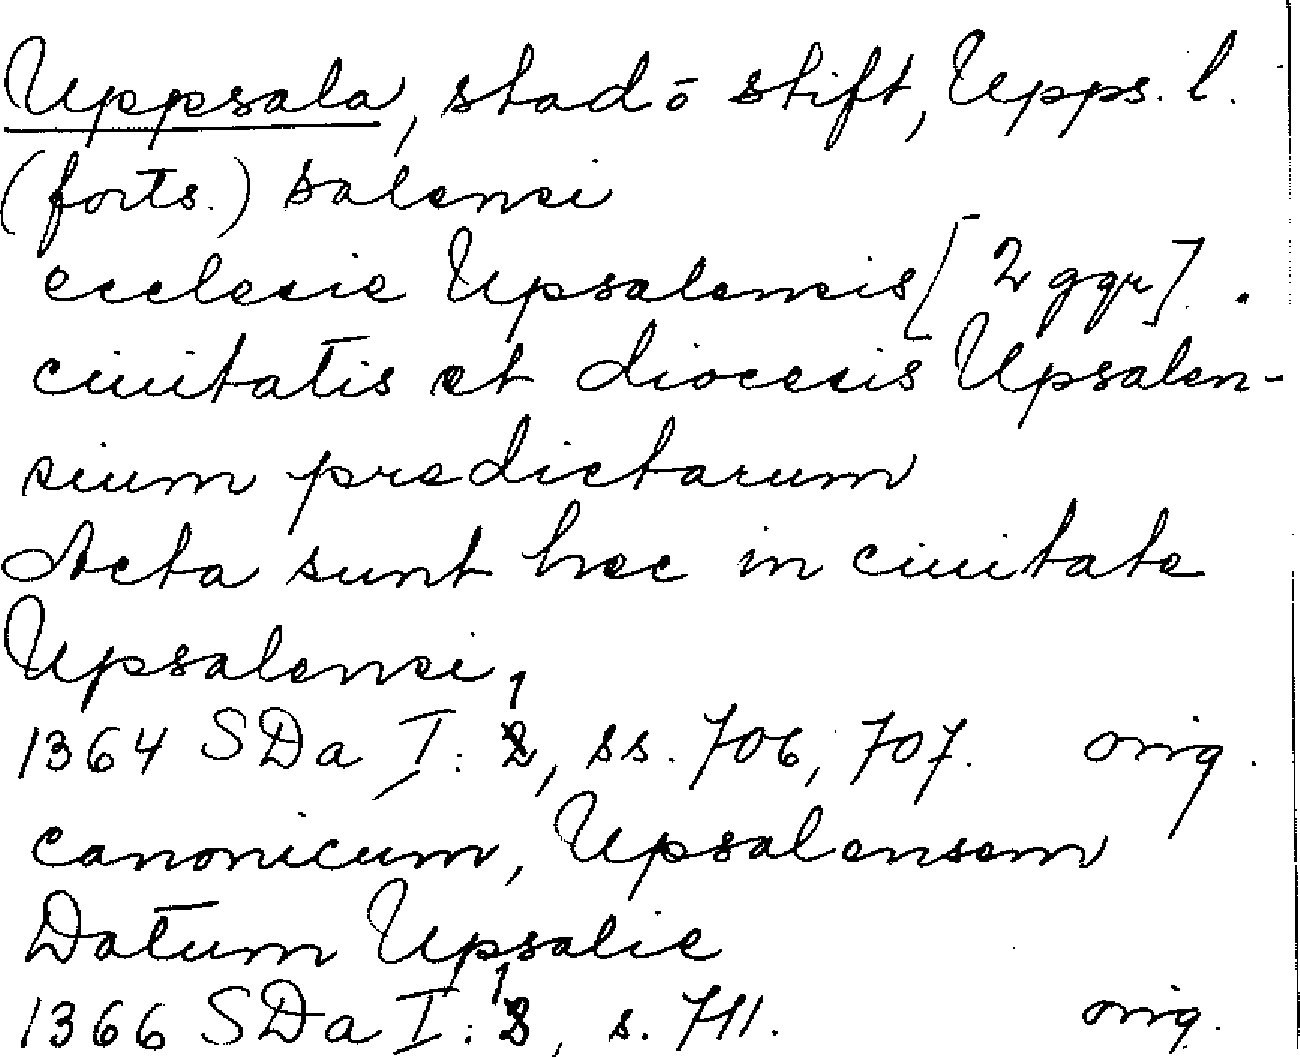 Uppsala, stad o stift, Upps. l.
(forts.) salensi
ecclesie Upsalensis [2 ggr].
ciuitatis et diocesis Upsalen-
sium predictarum
Acta sunt hec in ciuitate
Upsalensi,
1364 SDa I: 1, ss. 706, 707. orig.
canonicum, Upsalensem
Datum Upsalie
1366 SDa I: 1, s. 711. orig.